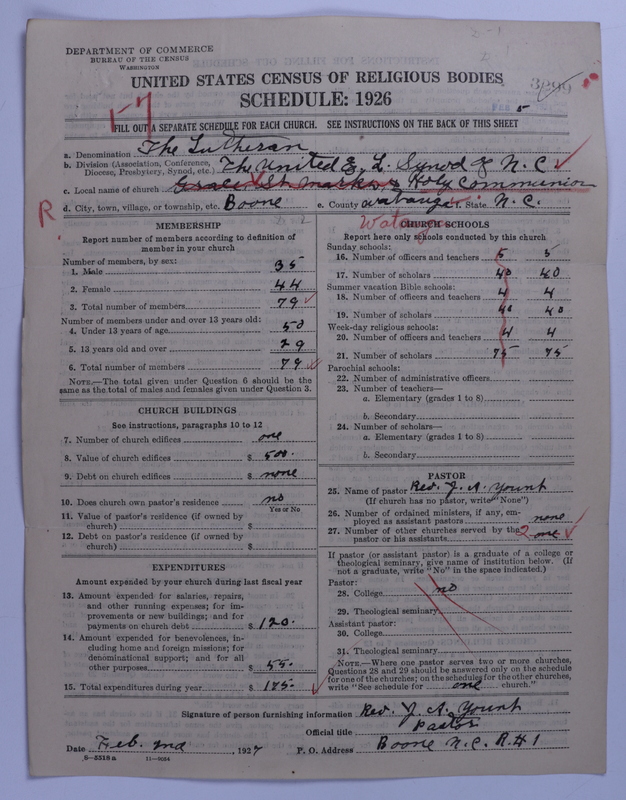 DEPARTMENT OF COMMERCE
BUREAU OF THE CENSUS
WASHINGTON
UNITED STATES CENSUS OF RELIGIOUS BODIES
SCHEDULE: 1926
FEB 5
1-7
FILL OUT A SEPARATE SCHEDULE FOR EACH CHURCH. SEE INSTRUCTIONS ON THE BACK OF THIS SHEET
a. Denomination The Lutheran
b. Division (Association, Conference, Diocese, Presbytery, Synod, etc.) The United E. L. Synod of N. C.
c. Local name of church Grace St. Marks & Holy Communion
d. City, town, village, or township, etc. Boone e. County Watauga f. State N. C.
R. Watauga
MEMBERSHIP
Report number of members according to definition of member in your church
Number of members, by sex:
1. Male 35
2. Female 44
3. Total number of members 79
Number of members under and over 13 years old:
4. Under 13 years of age 50
5. 13 years old and over 29
6. Total number of members 79
NOTE.—The total given under Question 6 should be the same as the total of males and females given under Question 3.
CHURCH BUILDINGS
See instructions, paragraphs 10 to 12
7. Number of church edifices one
8. Value of church edifices $ 500.
9. Debt on church edifices $ none
10. Does church own pastor's residence no
Yes or No
11. Value of pastor's residence (if owned by church) $
12. Debt on pastor's residence (if owned by church) $
EXPENDITURES
Amount expended by your church during last fiscal year
13. Amount expended for salaries, repairs, and other running expenses; for improvements or new buildings; and for payments on church debt $ 120.
14. Amount expended for benevolences, including home and foreign missions; for denominational support; and for all other purposes $ 55.
15. Total expenditures during year $ 175.
CHURCH SCHOOLS
Report here only schools conducted by this church
Sunday schools:
16. Number of officers and teachers 5 5
17. Number of scholars 40 40
Summer vacation Bible schools:
18. Number of officers and teachers 4 4
19. Number of scholars 40 40
Week-day religious schools:
20. Number of officers and teachers 4 4
21. Number of scholars 75 75
Parochial schools:
22. Number of administrative officers
23. Number of teachers—
a. Elementary (grades 1 to 8)
b. Secondary
24. Number of scholars—
a. Elementary (grades 1 to 8)
b. Secondary
PASTOR
25. Name of pastor Rev. J. A. Yount
(If church has no pastor, write "None")
26. Number of ordained ministers, if any, employed as assistant pastors none
27. Number of other churches served by the pastor or his assistants 2 one
If pastor (or assistant pastor) is a graduate of a college or theological seminary, give name of institution below. (If not a graduate, write "No" in the space indicated.)
Pastor:
28. College no
29. Theological seminary
Assistant pastor:
30. College
31. Theological seminary
NOTE.—Where one pastor serves two or more churches, Questions 28 and 29 should be answered only on the schedule for one of the churches; on the schedules for the other churches, write "See schedule for one church."
Signature of person furnishing information Rev. J. A. Yount
Official title Pastor
Date Feb. 2nd, 1927 P. O. Address Boone N.C. R#1
6—5318 a 11—9034